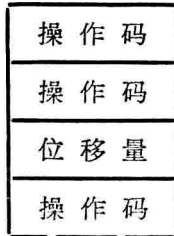 操作码
操作码
位移量
操作码